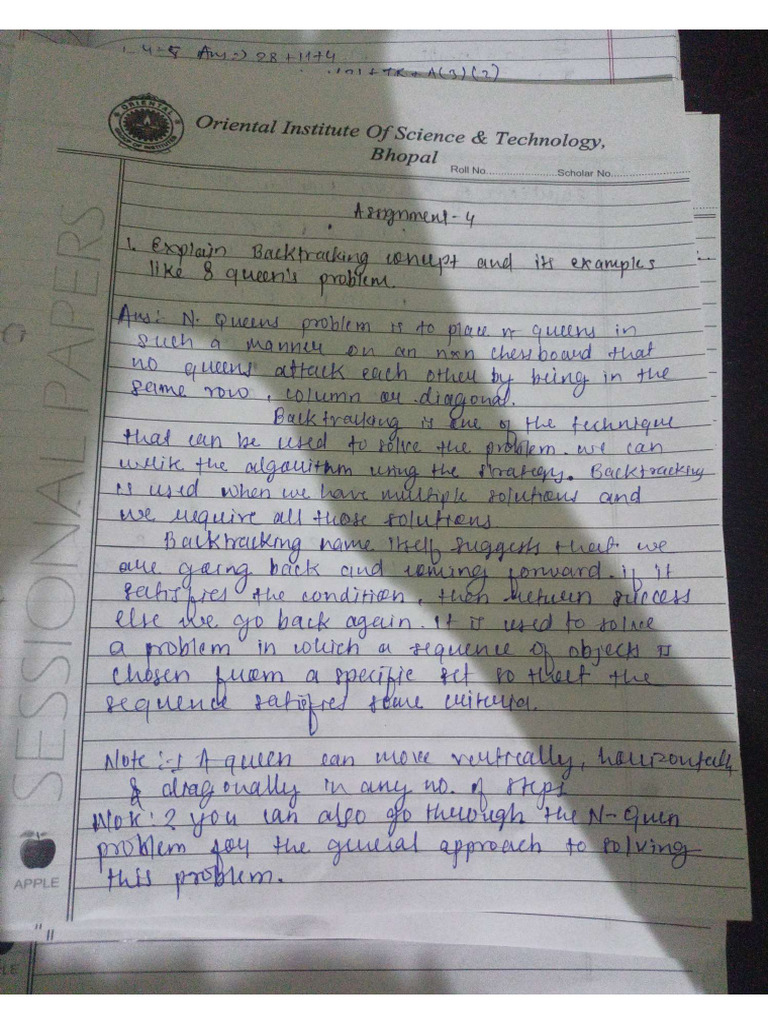 4=8 Ans => 28+11+4
ORIENTAL
GROUP OF INSTITUTES
Oriental Institute Of Science & Technology,
Bhopal
Roll No.....................Scholar No.......................
Assignment - 4
1. Explain Backtracking concept and its examples
like 8 queen's problem.
Ans:- N- Queens problem is to place n queens in
such a manner on an nxn chessboard that
no queens attack each other by being in the
same row, column or diagonal.
Backtracking is one of the technique
that can be used to solve the problem. we can
write the algorithm using the strategy. Backtracking
is used when we have multiple solutions and
we require all those solutions
Backtracking name itself suggests that we
are going back and coming forward. if it
satisfies the condition, then return success
else we go back again. It is used to solve
a problem in which a sequence of objects is
chosen from a specific set so that the
sequence satisfies some criteria.
Note:-1 A queen can move vertically, horizontally
& diagonally in any no. of steps
Note: 2 you can also go through the N-Quen
problem for the general approach to solving
this problem.
SESSIONAL PAPERS
APPLE